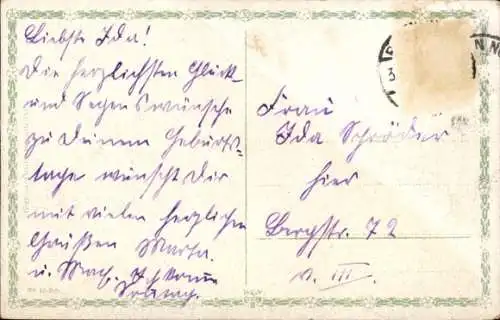 Liebste Ida!
Die herzlichsten Glück
und Segenswünsche
zu Deinem Geburts-
tage wünscht Dir
mit vielen herzlichen
Grüßen Marta.
u. Ich komme
Sonntag.
Frau
Ida Schröder
hier
Bergstr. 72
v. III.